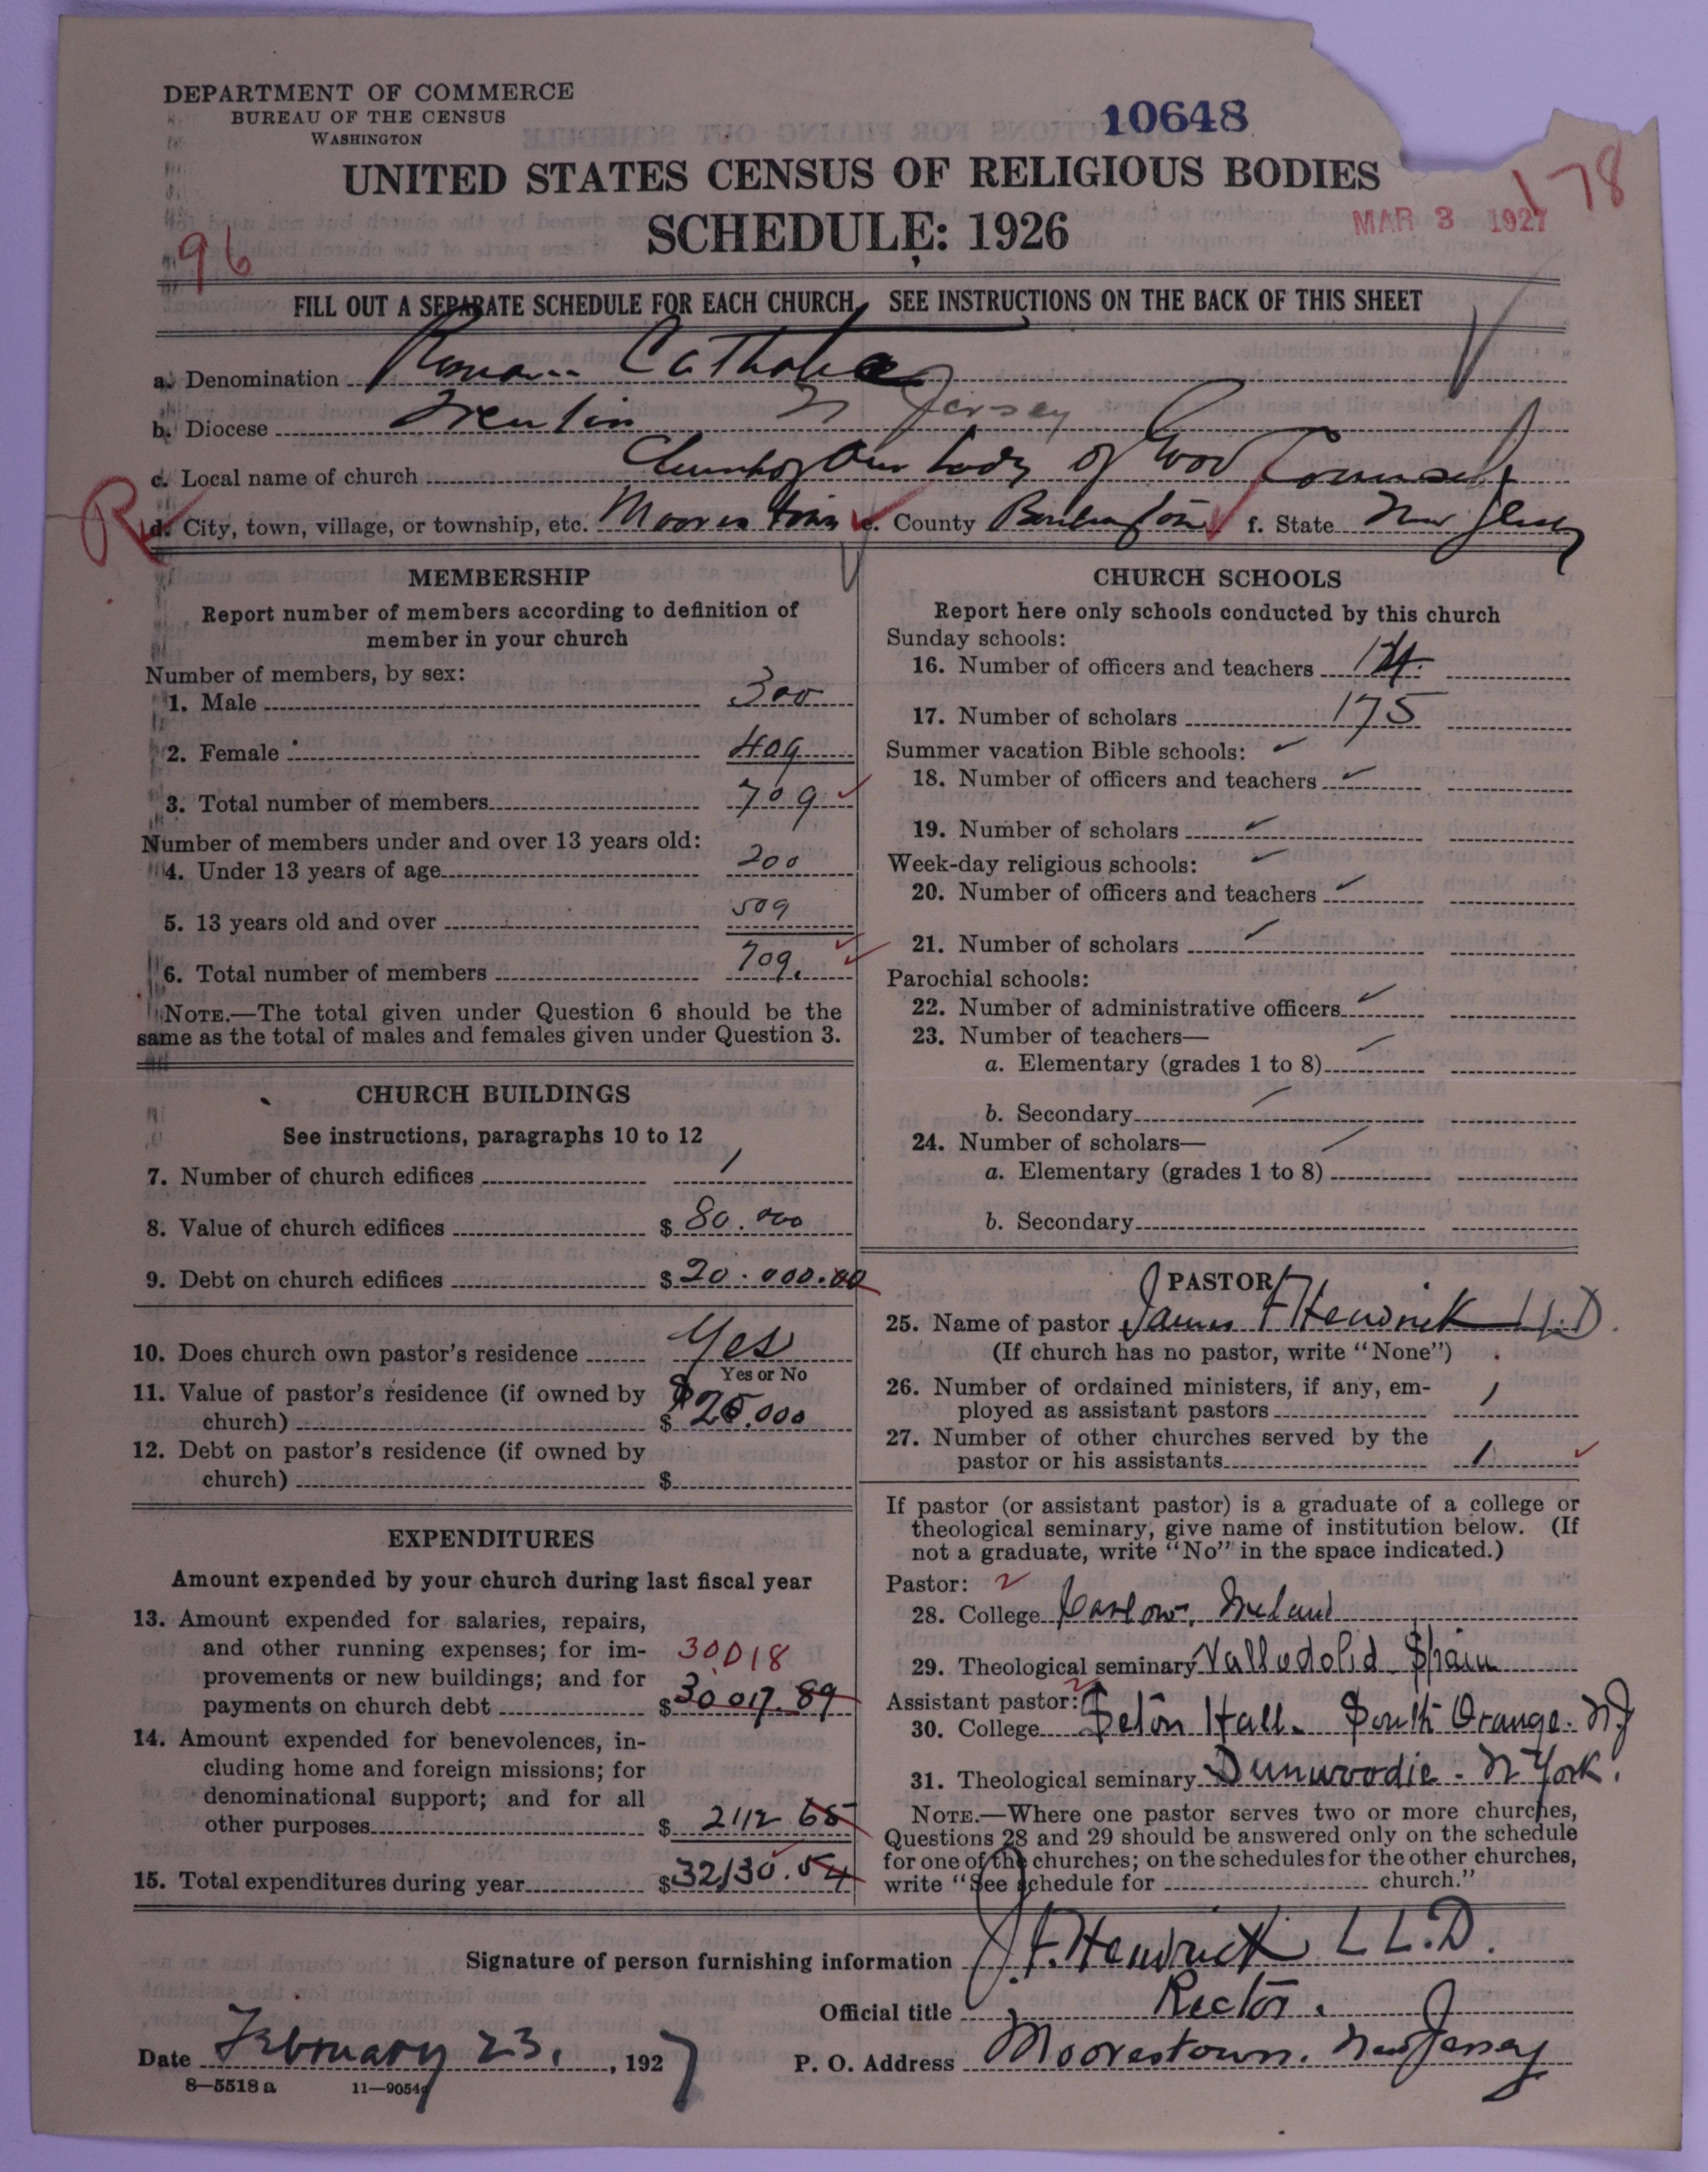 DEPARTMENT OF COMMERCE
BUREAU OF THE CENSUS
WASHINGTON
10648
178
UNITED STATES CENSUS OF RELIGIOUS BODIES
MAR 3 1927
SCHEDULE: 1926
96
FILL OUT A SEPARATE SCHEDULE FOR EACH CHURCH. SEE INSTRUCTIONS ON THE BACK OF THIS SHEET
a. Denomination Roman Catholic
b. Diocese Trenton N Jersey
c. Local name of church Church of Our Lady of Good Counsel
R
d. City, town, village, or township, etc. Moorestown e. County Burlington f. State New Jersey
MEMBERSHIP
Report number of members according to definition of
member in your church
Number of members, by sex:
1. Male 300
2. Female 409
3. Total number of members 709
Number of members under and over 13 years old:
4. Under 13 years of age 200
5. 13 years old and over 509
6. Total number of members 709.
NOTE.—The total given under Question 6 should be the
same as the total of males and females given under Question 3.
CHURCH BUILDINGS
See instructions, paragraphs 10 to 12
7. Number of church edifices 1
8. Value of church edifices $ 80.000
9. Debt on church edifices $ 20.000.00
10. Does church own pastor's residence Yes
Yes or No
11. Value of pastor's residence (if owned by
church) $ $25.000
12. Debt on pastor's residence (if owned by
church) $
EXPENDITURES
Amount expended by your church during last fiscal year
13. Amount expended for salaries, repairs,
and other running expenses; for im-
30018
provements or new buildings; and for
payments on church debt $ 30 017.89
14. Amount expended for benevolences, in-
cluding home and foreign missions; for
denominational support; and for all
other purposes $ 2112 65
15. Total expenditures during year $ 32130.54
CHURCH SCHOOLS
Report here only schools conducted by this church
Sunday schools:
16. Number of officers and teachers
17. Number of scholars 175
Summer vacation Bible schools:
18. Number of officers and teachers
19. Number of scholars
Week-day religious schools:
20. Number of officers and teachers
21. Number of scholars
Parochial schools:
22. Number of administrative officers
23. Number of teachers—
a. Elementary (grades 1 to 8)
b. Secondary
24. Number of scholars—
a. Elementary (grades 1 to 8)
b. Secondary
PASTOR
25. Name of pastor James F Hendrick LL.D.
(If church has no pastor, write "None")
26. Number of ordained ministers, if any, em-
ployed as assistant pastors 1
27. Number of other churches served by the
pastor or his assistants 1
If pastor (or assistant pastor) is a graduate of a college or
theological seminary, give name of institution below. (If
not a graduate, write "No" in the space indicated.)
Pastor:
28. College Carlow, Ireland
29. Theological seminary Valledolid Spain
Assistant pastor:
30. College Seton Hall. South Orange. NJ
31. Theological seminary Dunwoodie - N York.
NOTE.—Where one pastor serves two or more churches,
Questions 28 and 29 should be answered only on the schedule
for one of the churches; on the schedules for the other churches,
write "See schedule for church."
Signature of person furnishing information J. F. Hendrick LL.D.
Official title Rector.
Date February 23, 1927
P. O. Address Moorestown. New Jersey
8—5518 a 11—9054